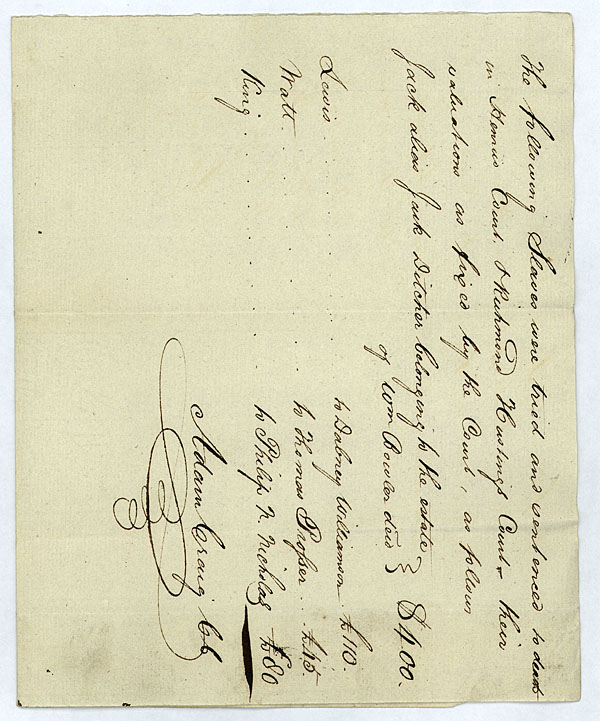 The following Slaves were tried and sentenced to death
in Henrico Court & Richmond Hustings Court & their
valuations as fixed by the Court, as follows
Jack alias Jack Ditcher belonging to the estate
of Wm Bowler decd } $400.
Lewis . . . . . . to Dabney Williamson £110.
Watt . . . . . . to Thomas Prosser . . £45.
King . . . . . . to Philip N. Nicholas £80
Adam Craig CC